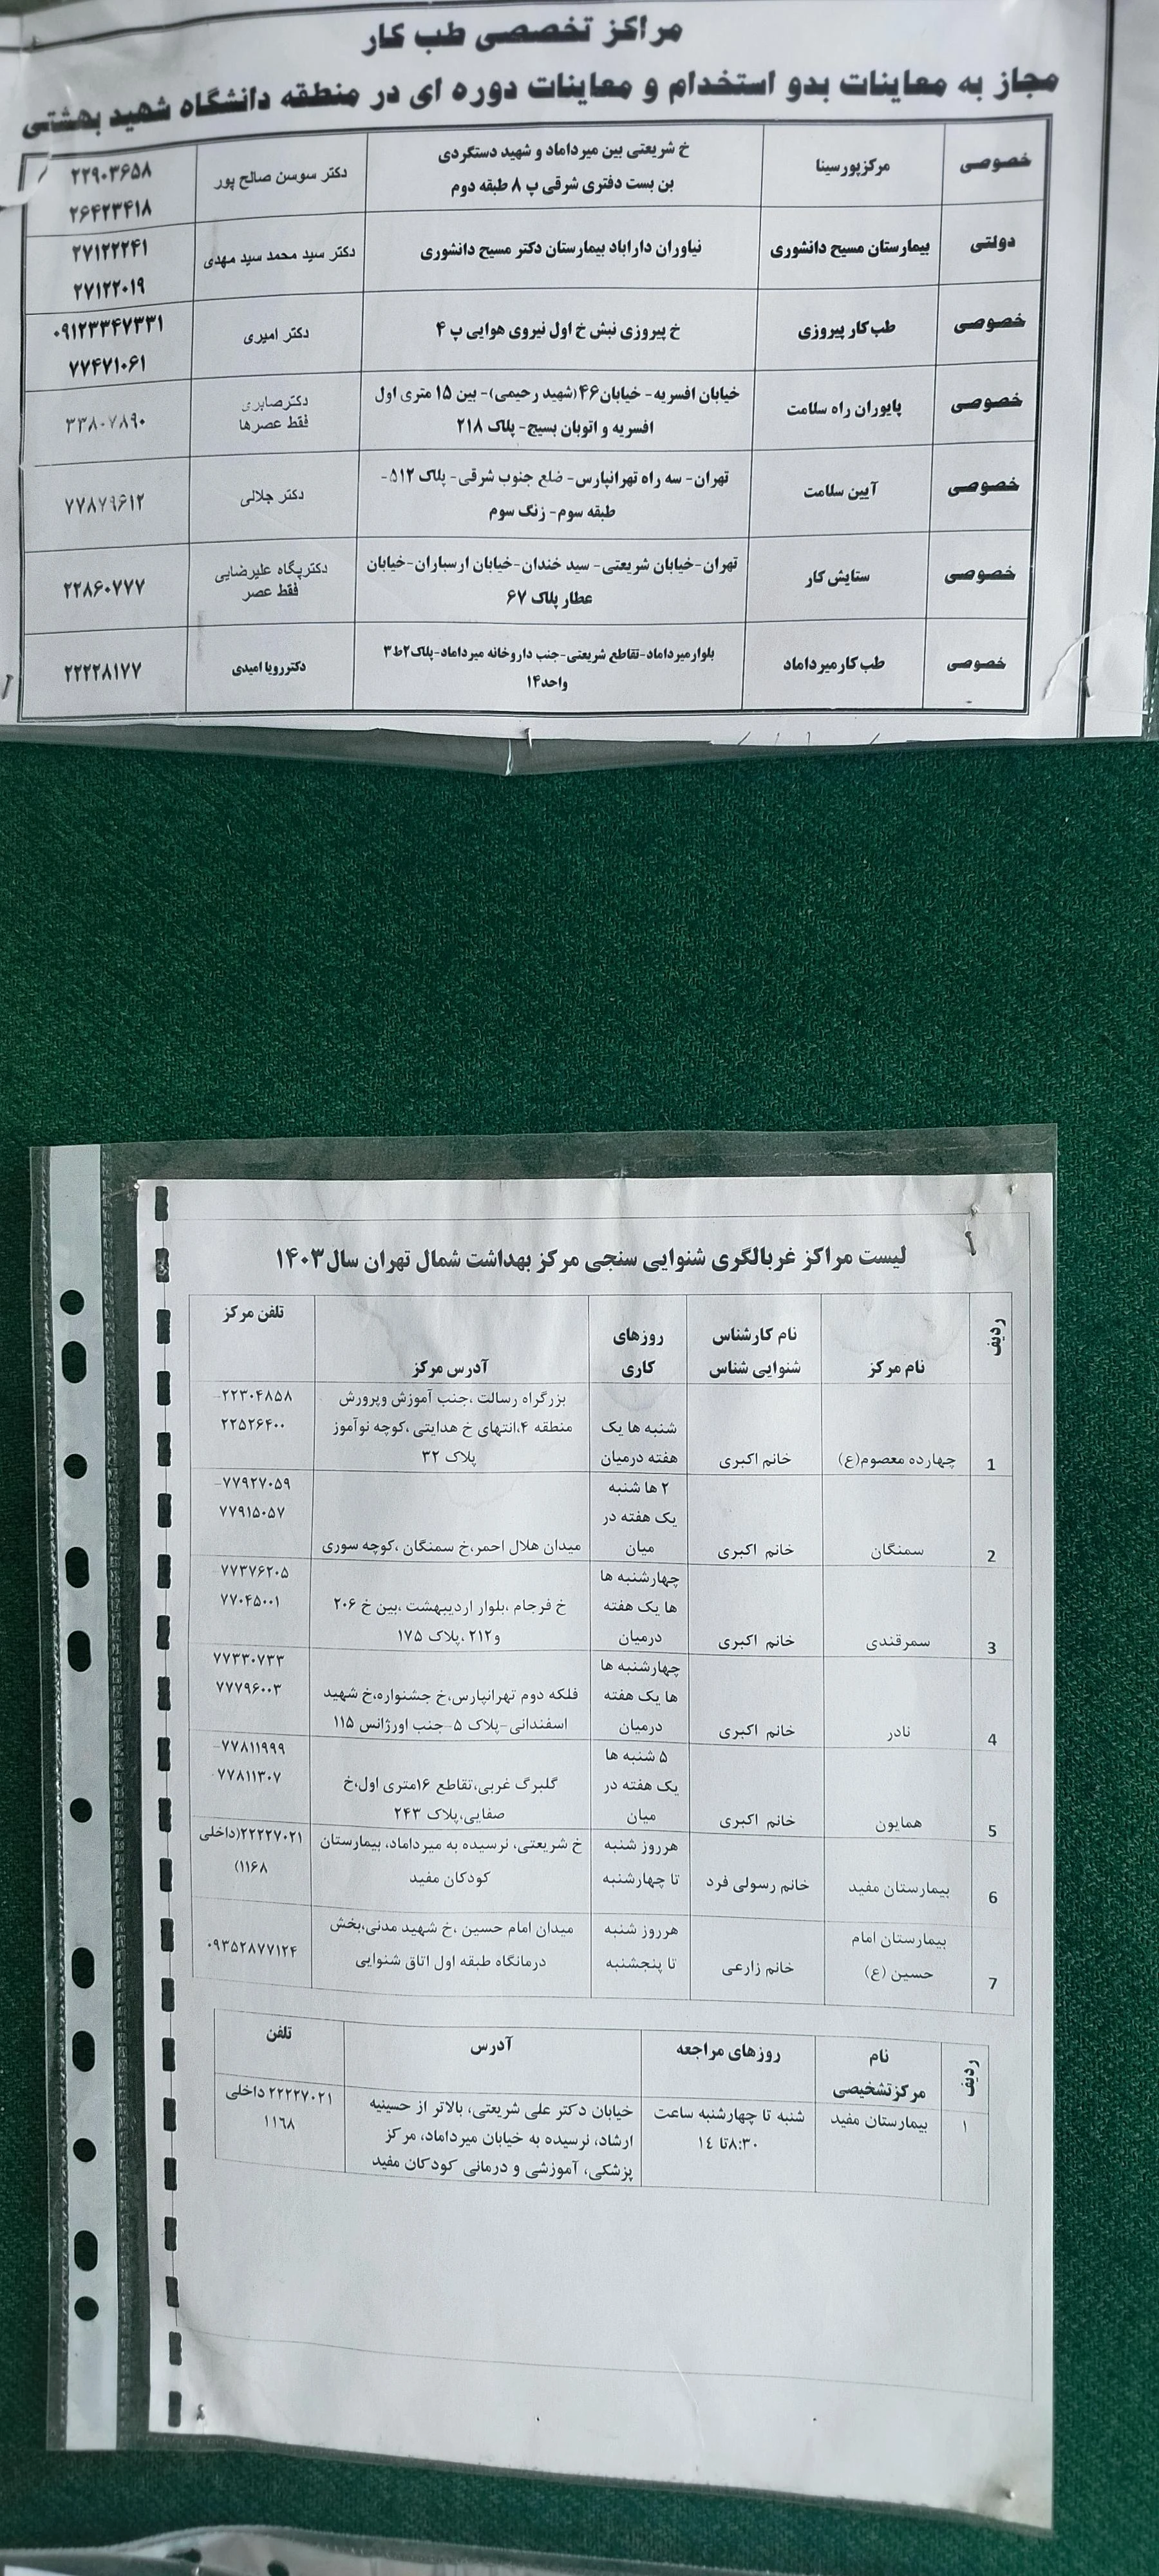 مراکز تخصصی طب کار
مجاز به معاینات بدو استخدام و معاینات دوره ای در منطقه دانشگاه شهید بهشتی
خصوصی
مرکزپورسینا
خ شریعتی بین میرداماد و شهید دستگردی
بن بست دفتری شرقی پ ۸ طبقه دوم
دکتر سوسن صالح پور
۲۲۹۰۳۶۵۸
۲۶۴۲۳۴۱۸
دولتی
بیمارستان مسیح دانشوری
نیاوران داراباد بیمارستان دکتر مسیح دانشوری
دکتر سید محمد سید مهدی
۲۷۱۲۲۲۴۱
۲۷۱۲۲۰۱۹
خصوصی
طب کار پیروزی
خ پیروزی نبش خ اول نیروی هوایی پ ۴
دکتر امیری
۰۹۱۲۳۳۴۷۳۳۱
۷۷۴۷۱۰۶۱
خصوصی
پایوران راه سلامت
خیابان افسریه- خیابان۴۶(شهید رحیمی)- بین ۱۵ متری اول
افسریه و اتوبان بسیج- پلاک ۲۱۸
دکترصابری
فقط عصرها
۳۳۸۰۷۸۹۰
خصوصی
آیین سلامت
تهران- سه راه تهرانپارس- ضلع جنوب شرقی- پلاک ۵۱۲-
طبقه سوم- زنگ سوم
دکتر جلالی
۷۷۸۷۹۶۱۲
خصوصی
ستایش کار
تهران-خیابان شریعتی- سید خندان-خیابان ارسباران-خیابان
عطار پلاک ۶۷
دکترپگاه علیرضایی
فقط عصر
۲۲۸۶۰۷۷۷
خصوصی
طب کارمیرداماد
بلوارمیرداماد-تقاطع شریعتی-جنب داروخانه میرداماد-پلاک۲ط۳
واحد۱۴
دکتررویا امیدی
۲۲۲۲۸۱۷۷
لیست مراکز غربالگری شنوایی سنجی مرکز بهداشت شمال تهران سال۱۴۰۳
ردیف
نام مرکز
نام کارشناس
شنوایی شناس
روزهای
کاری
آدرس مرکز
تلفن مرکز
1
چهارده معصوم(ع)
خانم اکبری
شنبه ها یک
هفته درمیان
بزرگراه رسالت ،جنب آموزش وپرورش
منطقه ۴،انتهای خ هدایتی ،کوچه نوآموز
پلاک ۳۲
۲۲۳۰۴۸۵۸-
۲۲۵۲۶۴۰۰
2
سمنگان
خانم اکبری
۲ ها شنبه
یک هفته در
میان
میدان هلال احمر،خ سمنگان ،کوچه سوری
۷۷۹۲۷۰۵۹-
۷۷۹۱۵۰۵۷
3
سمرقندی
خانم اکبری
چهارشنبه ها
ها یک هفته
درمیان
خ فرجام ،بلوار اردیبهشت ،بین خ ۲۰۶
و۲۱۲ ،پلاک ۱۷۵
۷۷۳۷۶۲۰۵
۷۷۰۴۵۰۰۱
4
نادر
خانم اکبری
چهارشنبه ها
ها یک هفته
درمیان
فلکه دوم تهرانپارس،خ جشنواره،خ شهید
اسفندانی-پلاک ۵-جنب اورژانس ۱۱۵
۷۷۳۳۰۷۳۳
۷۷۷۹۶۰۰۳
5
همایون
خانم اکبری
۵ شنبه ها
یک هفته در
میان
گلبرگ غربی،تقاطع ۱۶متری اول،خ
صفایی،پلاک ۲۴۳
۷۷۸۱۱۹۹۹-
۷۷۸۱۱۳۰۷
6
بیمارستان مفید
خانم رسولی فرد
هرروز شنبه
تا چهارشنبه
خ شریعتی، نرسیده به میرداماد، بیمارستان
کودکان مفید
۲۲۲۲۷۰۲۱(داخلی
۱۱۶۸)
7
بیمارستان امام
حسین (ع)
خانم زارعی
هرروز شنبه
تا پنجشنبه
میدان امام حسین ،خ شهید مدنی،بخش
درمانگاه طبقه اول اتاق شنوایی
۰۹۳۵۲۸۷۷۱۲۴
ردیف
نام
مرکزتشخیصی
روزهای مراجعه
آدرس
تلفن
۱
بیمارستان مفید
شنبه تا چهارشنبه ساعت
۸:۳۰تا ١٤
خیابان دکتر علی شریعتی، بالاتر از حسینیه
ارشاد، نرسیده به خیابان میرداماد، مرکز
پزشکی، آموزشی و درمانی کودکان مفید
۲۲۲۲۷۰۲۱ داخلی
۱۱٦۸